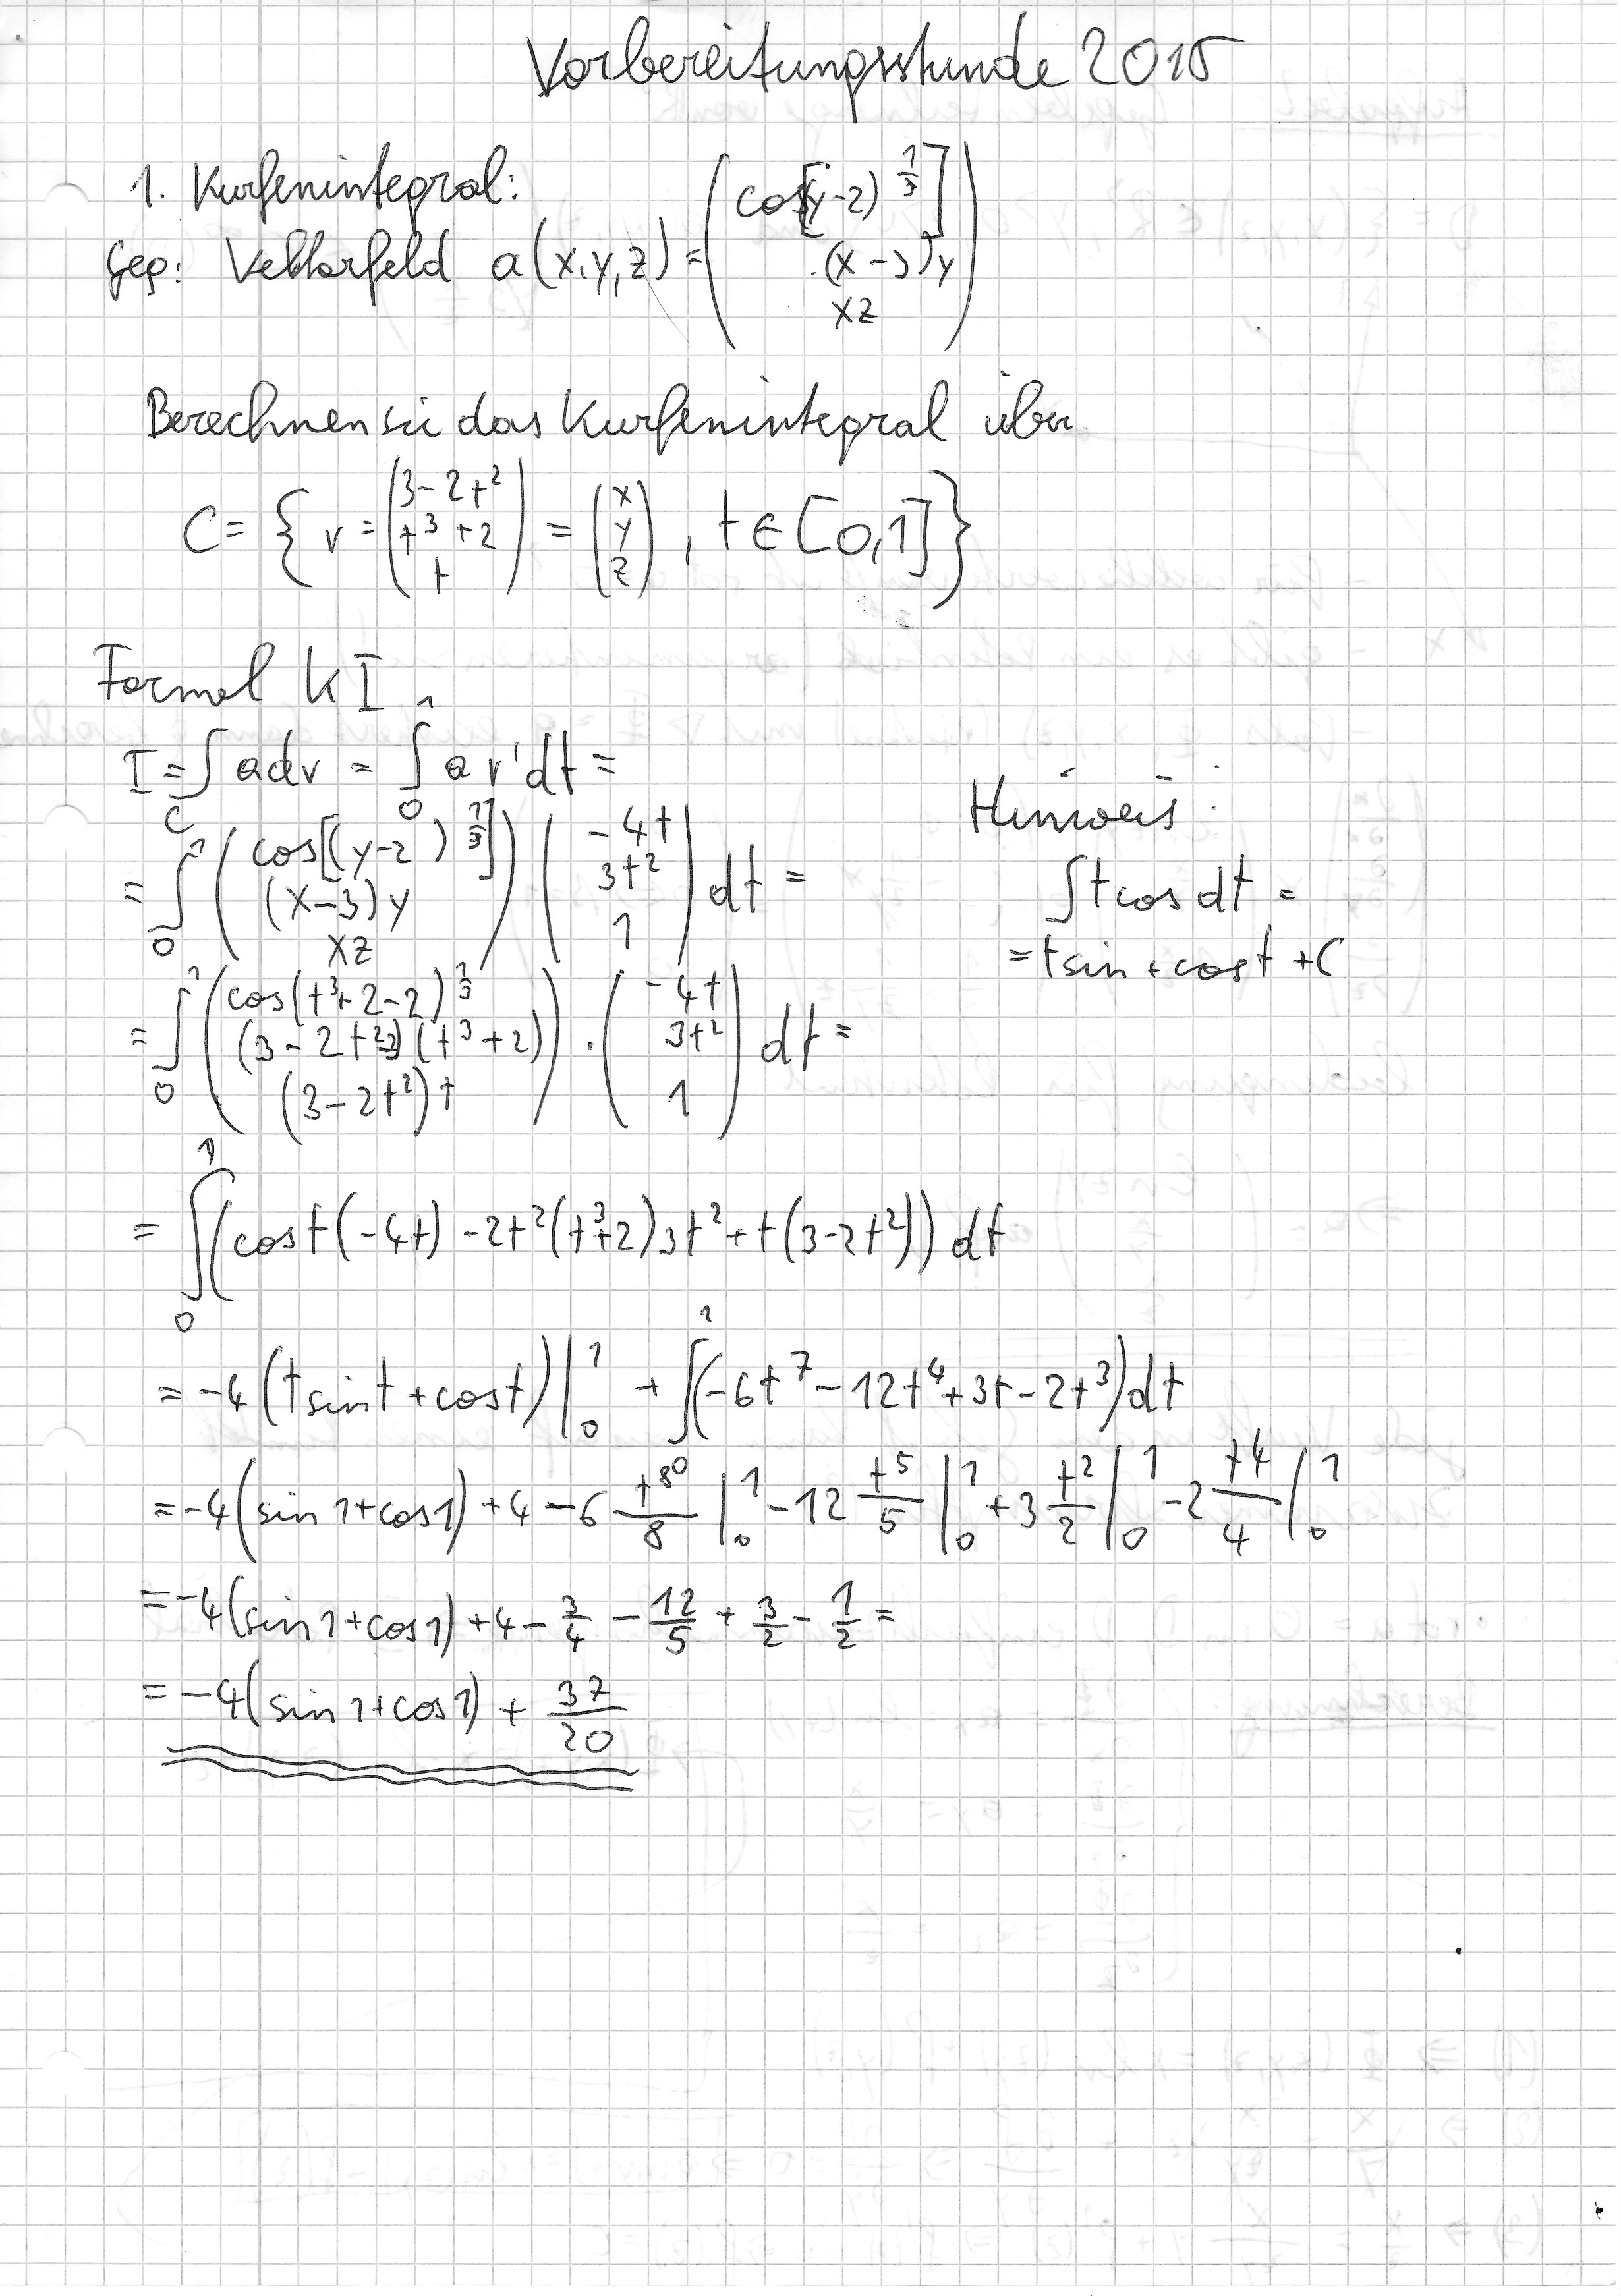 Vorbereitungsstunde 2015
1. Kurfenintegral:
Geg: Vektorfeld a(x,y,z) = ( cos[(y-2)^(1/3)] ; (x-3)y ; xz )
Berechnen sie das Kurfenintegral über
C = { v = ( 3-2t² ; t³+2 ; t ) = ( x ; y ; z ) , t ∈ [0,1] }
Formel KI
I = ∫_C a dv = ∫_0^1 a v' dt =
= ∫_0^1 ( cos[(y-2)^(1/3)] ; (x-3)y ; xz ) ( -4t ; 3t² ; 1 ) dt =
Hinweis:
∫ t cos dt =
= t sin + cos t + C
= ∫_0^1 ( cos(t³+2-2)^(1/3) ; (3-2t²-3)(t³+2) ; (3-2t²)t ) · ( -4t ; 3t² ; 1 ) dt =
= ∫_0^1 (cos t(-4t) - 2t²(t³+2)3t² + t(3-2t²)) dt
= -4(t sin t + cos t)|_0^1 + ∫(-6t^7 - 12t^4 + 3t - 2t³) dt
= -4(sin 1 + cos 1) + 4 - 6 t^8/8 |_0^1 - 12 t^5/5 |_0^1 + 3 t²/2 |_0^1 - 2 t^4/4 |_0^1
= -4(sin 1 + cos 1) + 4 - 3/4 - 12/5 + 3/2 - 1/2 =
= -4(sin 1 + cos 1) + 37/20